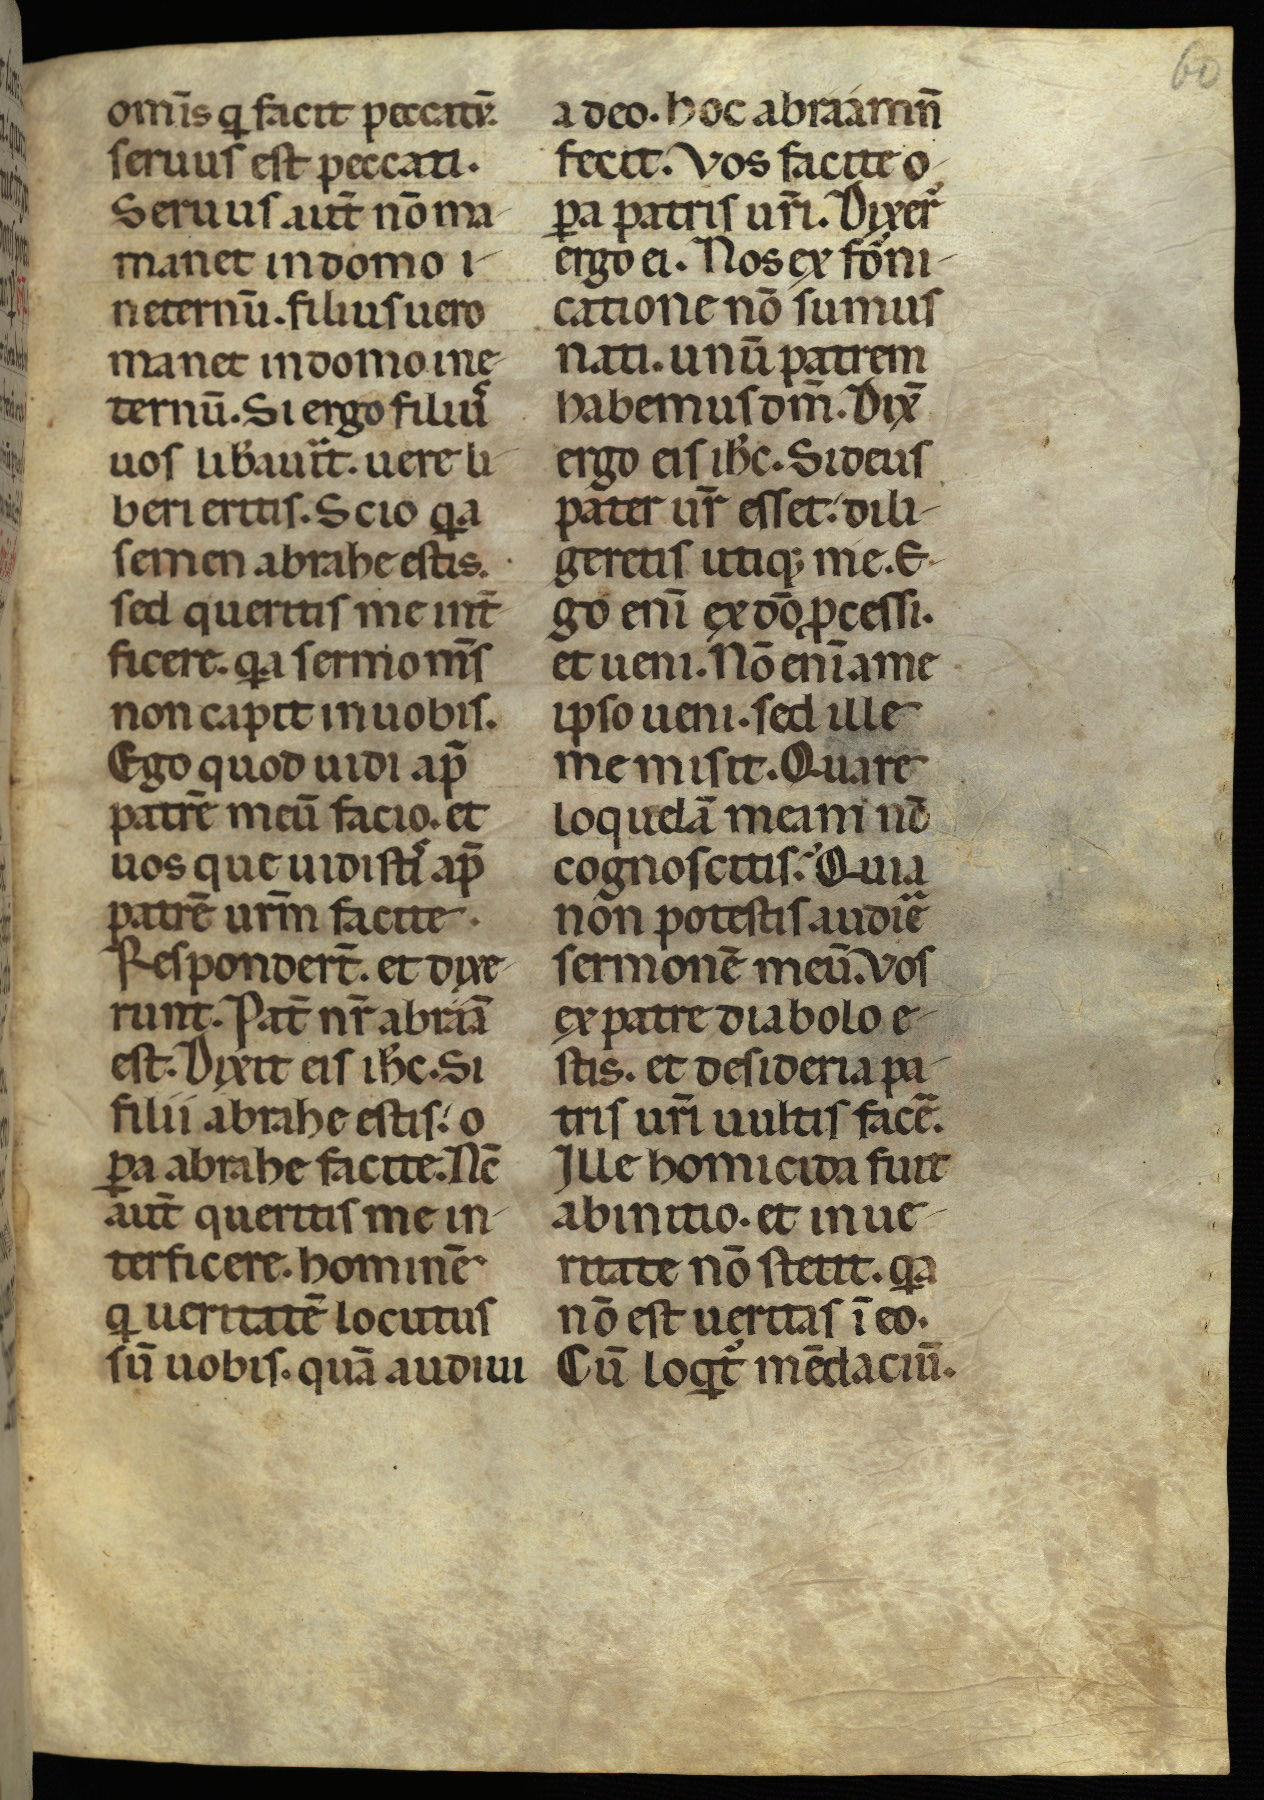 60
omīs q facit peccatū.
seruus est peccati.
Seruus aut̄ nō ma-
manet in domo i-
neternū. filius uero
manet in domo ine-
ternū. Si ergo filiꝰ
uos lib̄auit. uere li-
beri eritis. Scio qa
semen abrahe estis.
sed queritis me int̄-
ficere. qa sermo m̄s
non capit in uobis.
Ego quod uidi ap̄
patrē meū facio. et
uos que uidistis ap̄
patrē ur̄m facite.
Respondert̄. et dixe-
runt. Pat̄ nr̄ abraā
est. Dixit eis ih̄c. Si
filii abrahe estis: o
ꝑa abrahe facite. Nc̄
aut̄ queritis me in-
terficere. hominē
q ueritatē locutus
sū uobis. quā audiui
a deo. hoc abraam n̄
fecit. Vos facite o-
ꝑa patris ur̄i. Dixer̄
ergo ei. Nos ex foni-
catione nō sumus
nati. unū patrem
habemus dm̄. Dix̄
ergo eis ih̄c. Si deus
pater ur̄ esset: dili-
geretis utiqꝫ me. E-
go enī ex dō ꝓcessi.
et ueni. Nō enī a me
ipso ueni. sed ille
me misit. Quare
loquelā meam nō
cognoscitis? Quia
non potestis audiē
sermonē meū. Vos
ex patre diabolo e-
stis. et desideria pa-
tris ur̄i uultis facē.
Ille homicida fuit
ab initio. et in ue-
ritate nō stetit. qa
nō est ueritas ī eo.
Cū loqt̄ mēdaciū.